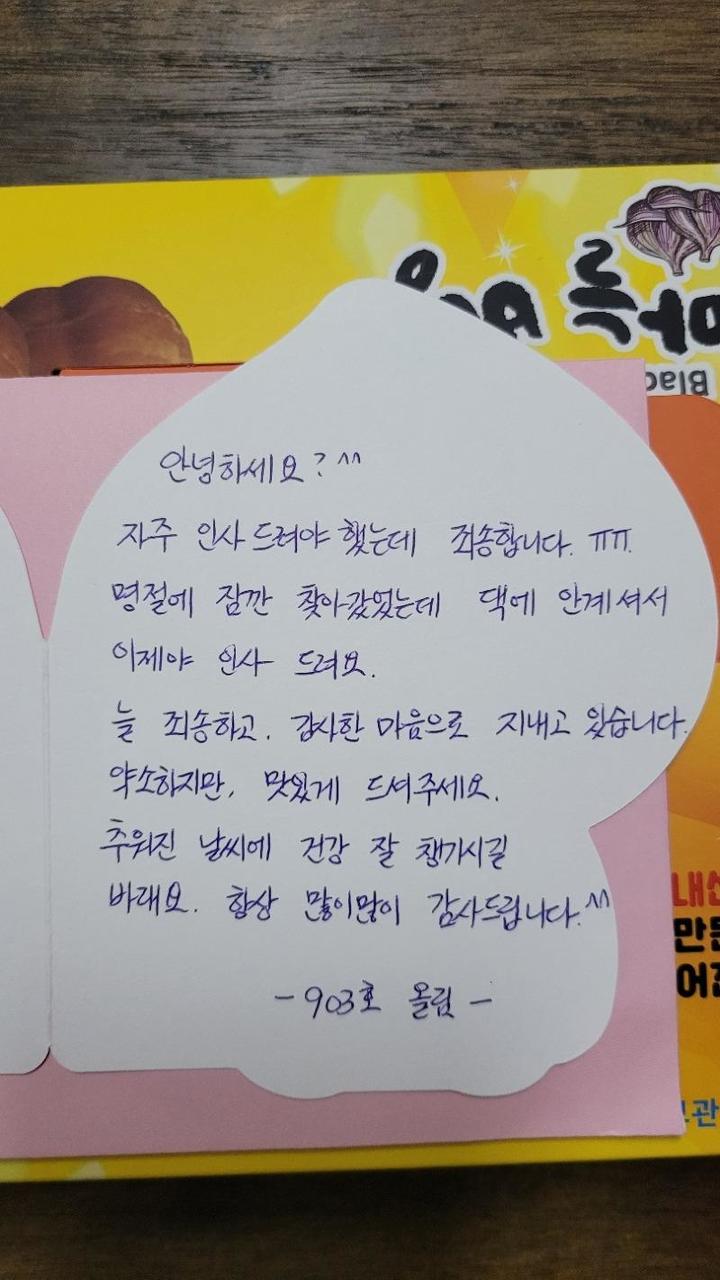 안녕하세요? ^^
자주 인사드려야 했는데 죄송합니다. ㅠㅠ.
명절에 잠깐 찾아갔었는데 댁에 안계셔서
이제야 인사 드려요.
늘 죄송하고, 감사한 마음으로 지내고 있습니다.
약소하지만, 맛있게 드셔주세요.
추워진 날씨에 건강 잘 챙기시길
바래요. 항상 많이많이 감사드립니다.^^
- 903호 올림 -
Blac
만든
관